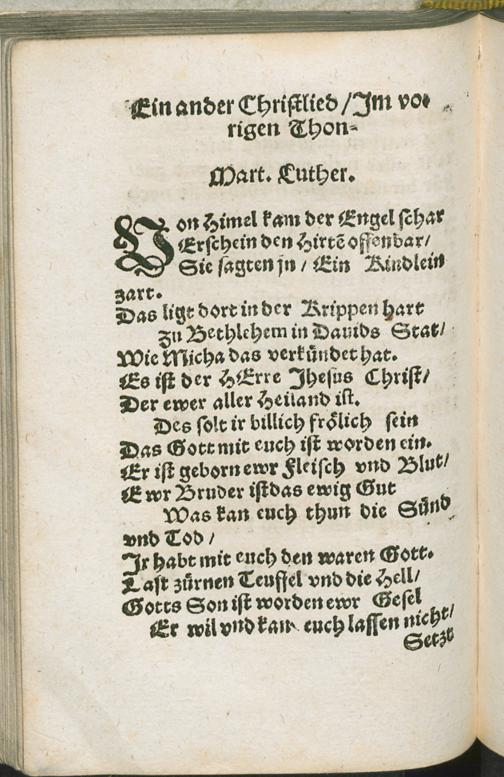 Ein ander Christlied / Im vo-
rigen Thon-
Mart. Luther.
Von Himel kam der Engel schar
Erschein den Hirtē offenbar /
Sie sagten jn / Ein Kindlein
zart.
Das ligt dort in der Krippen hart
zu Bethlehem in Dauids Stat /
Wie Micha das verkündet hat.
Es ist der HErre Jhesus Christ /
Der ewer aller Heiland ist.
Des solt ir billich frölich sein
Das Gott mit euch ist worden ein.
Er ist geborn ewr Fleisch vnd Blut /
Ewr Bruder ist das ewig Gut
Was kan euch thun die Sünd
vnd Tod /
Jr habt mit euch den waren Gott.
Last zürnen Teuffel vnd die Hell /
Gotts Son ist worden ewr Gesel
Er wil vnd kan euch lassen nicht /
Setzt